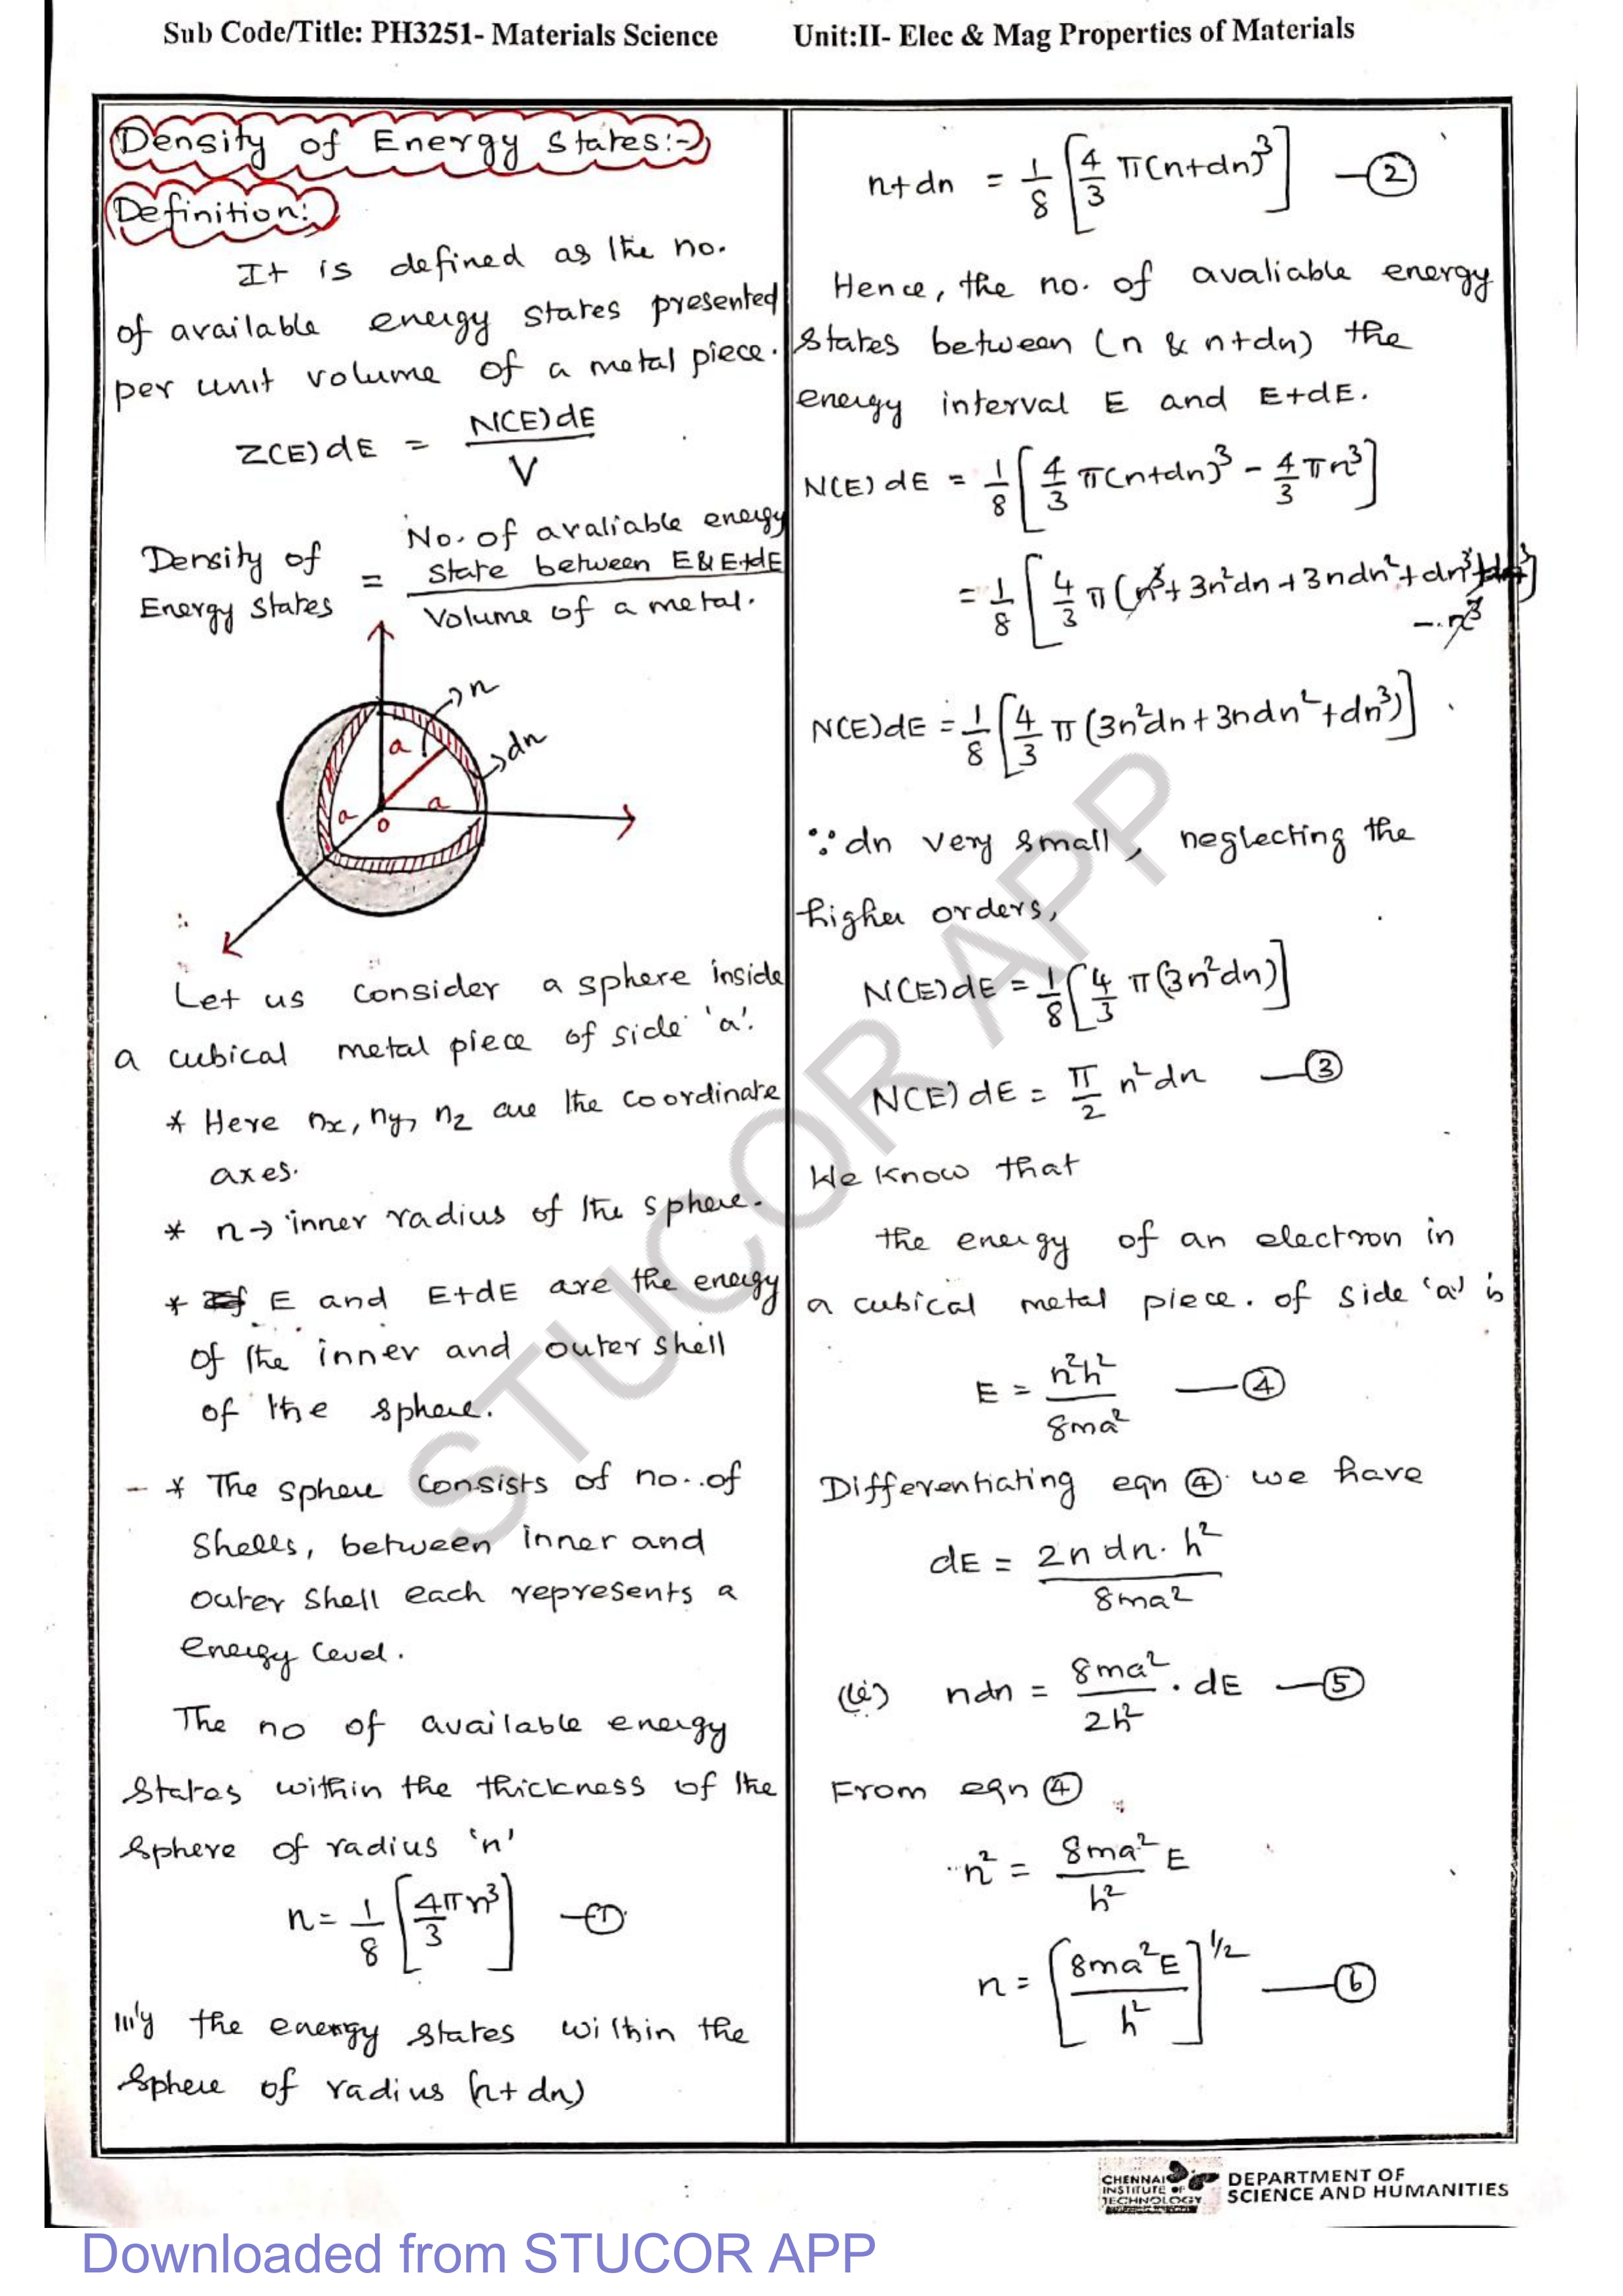 Sub Code/Title: PH3251- Materials Science Unit:II- Elec & Mag Properties of Materials
Density of Energy States:-
Definition:
It is defined as the no.
of available energy states presented
per unit volume of a metal piece.
Z(E)dE = N(E)dE / V
Density of Energy States = No. of avaliable energy state between E & E+dE / Volume of a metal.
n
dn
a
a
a
o
Let us consider a sphere inside
a cubical metal piece of side 'a'.
* Here nx, ny, nz are the coordinate
axes.
* n → inner radius of the sphere.
* E and E+dE are the energy
of the inner and outer shell
of the sphere.
- * The sphere consists of no. of
shells, between inner and
outer shell each represents a
energy level.
The no of available energy
states within the thickness of the
sphere of radius 'n'
n = 1/8 [4πn³/3] —①
lll'y the energy states within the
sphere of radius (n+dn)
n+dn = 1/8 [4/3 π(n+dn)³] —②
Hence, the no. of avaliable energy
states between (n & n+dn) the
energy interval E and E+dE.
N(E) dE = 1/8 [4/3 π(n+dn)³ - 4/3 πn³]
= 1/8 [4/3 π(n³ + 3n²dn + 3ndn² + dn³
- n³
N(E)dE = 1/8 [4/3 π (3n²dn + 3ndn² + dn³)]
∵ dn very small, neglecting the
higher orders,
N(E)dE = 1/8 [4/3 π(3n²dn)]
N(E) dE = π/2 n²dn —③
We know that
the energy of an electron in
a cubical metal piece. of side 'a' is
E = n²h² / 8ma² —④
Differentiating eqn ④ we have
dE = 2n dn. h² / 8ma²
(ie) ndn = 8ma² / 2h² . dE —⑤
From eqn ④
n² = 8ma² E / h²
n = [8ma²E / h²]^1/2 —⑥
CHENNAI
INSTITUTE OF
TECHNOLOGY
DEPARTMENT OF
SCIENCE AND HUMANITIES
STUCOR APP
Downloaded from STUCOR APP